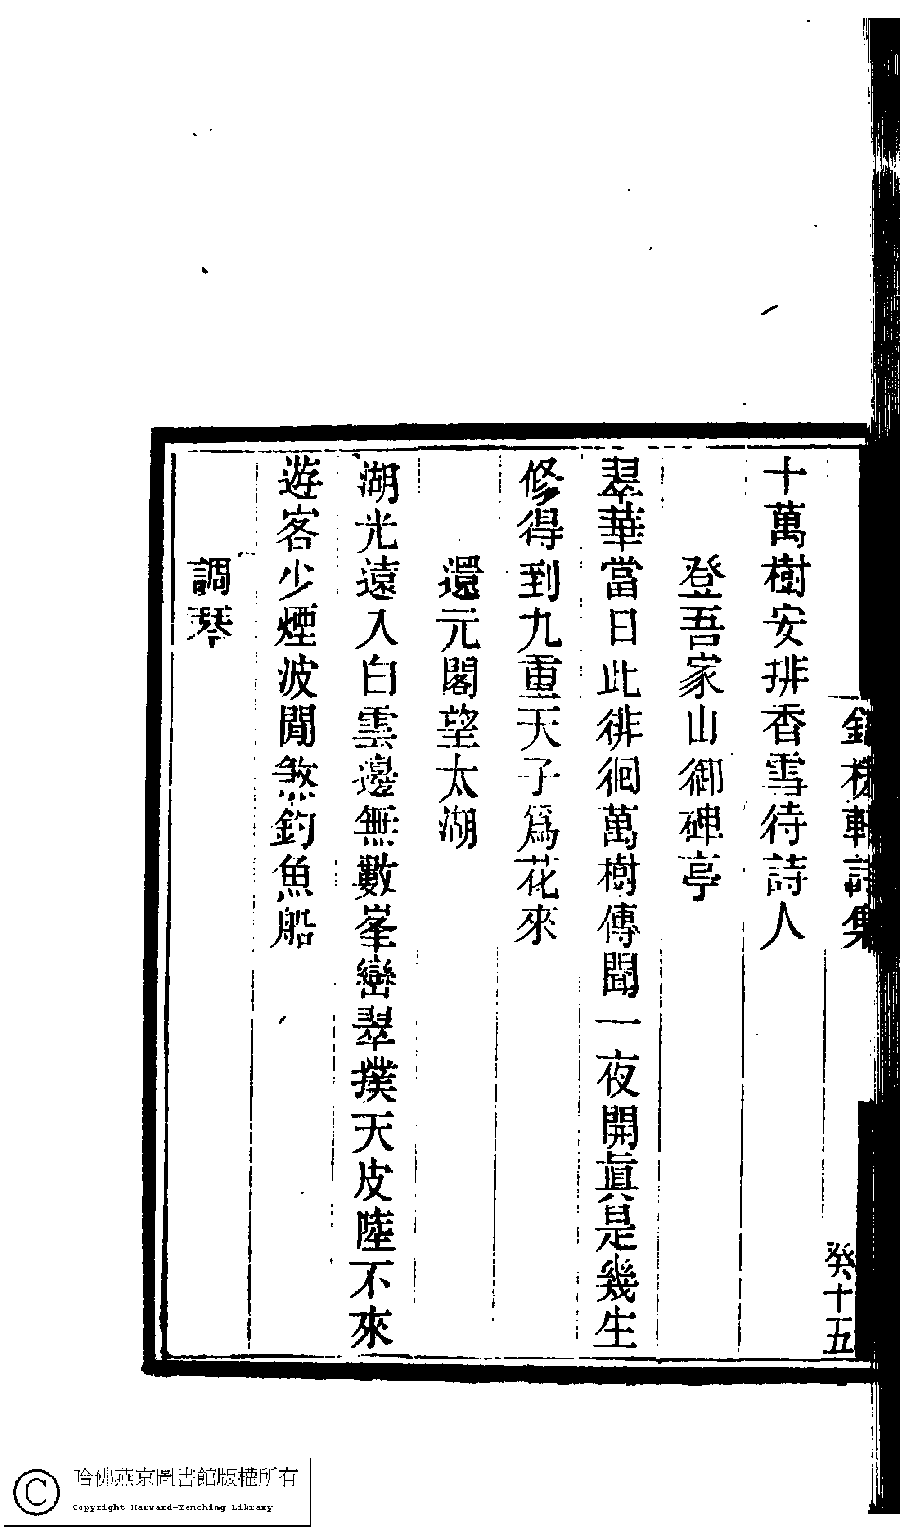 軒詩集
癸十五
十萬樹安排香雪待詩人
登吾家山御碑亭
翠華當日此徘徊萬樹傳聞一夜開眞是幾生
修得到九重天子爲花來
還元閣望太湖
湖光遠入白雲邊無數峯巒翠撲天皮陸不來
遊客少煙波閒煞釣魚船
調琴
哈佛燕京圖書館版權所有
Copyright Harvard-Yenching Library